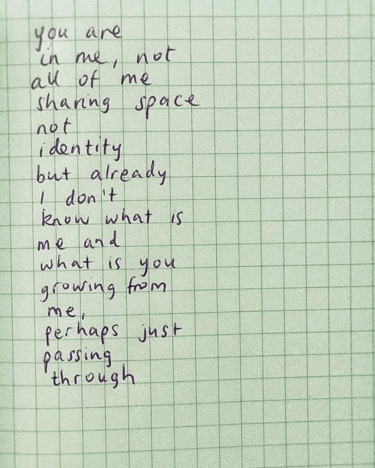 you are
in me, not
all of me
sharing space
not
identity
but already
I don't
know what is
me and
what is you
growing from
me,
perhaps just
passing
through